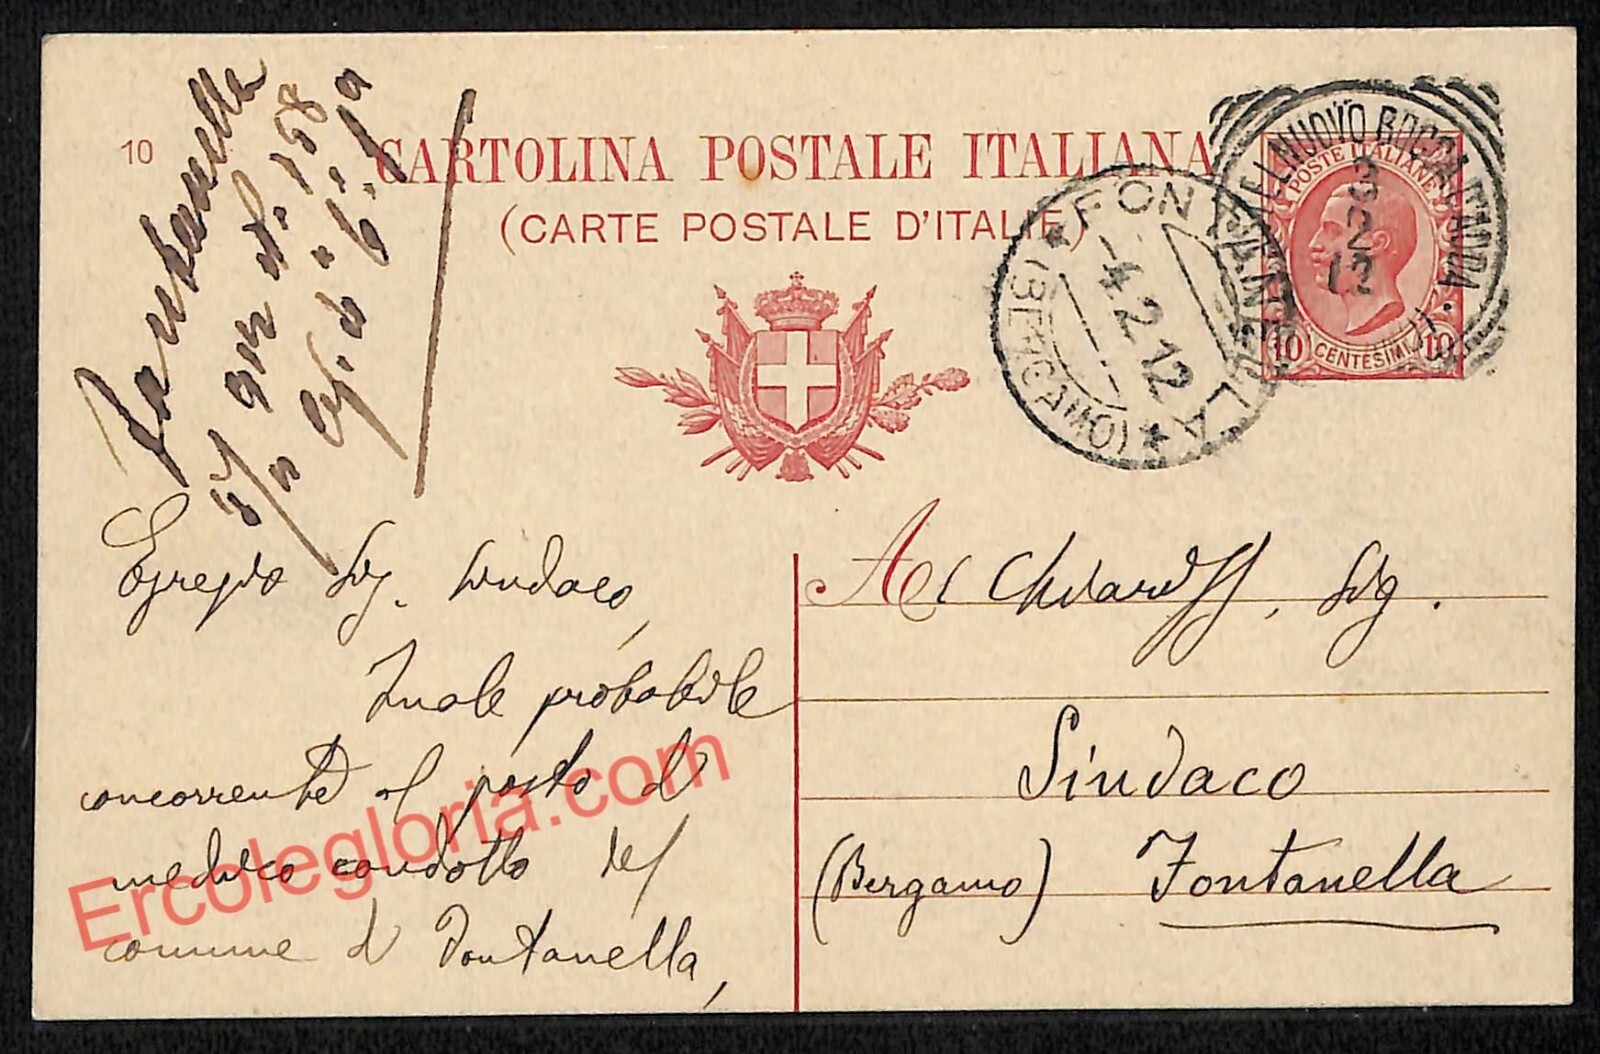 10
CARTOLINA POSTALE ITALIANA
(CARTE POSTALE D'ITALIE)
CASTELNUOVO BOCCA D'ADDA
3 2 12
POSTE ITALIANE
10 CENTESIMI 10
FONTANELLA
-4.2.12
(BERGAMO)
N. 158
Egregio Sig. Sindaco,
Quale probabile
concorrente al posto di
medico condotto del
comune di Fontanella,
Al Chiariss. Sig.
Sindaco
(Bergamo) Fontanella
Ercolegloria.com